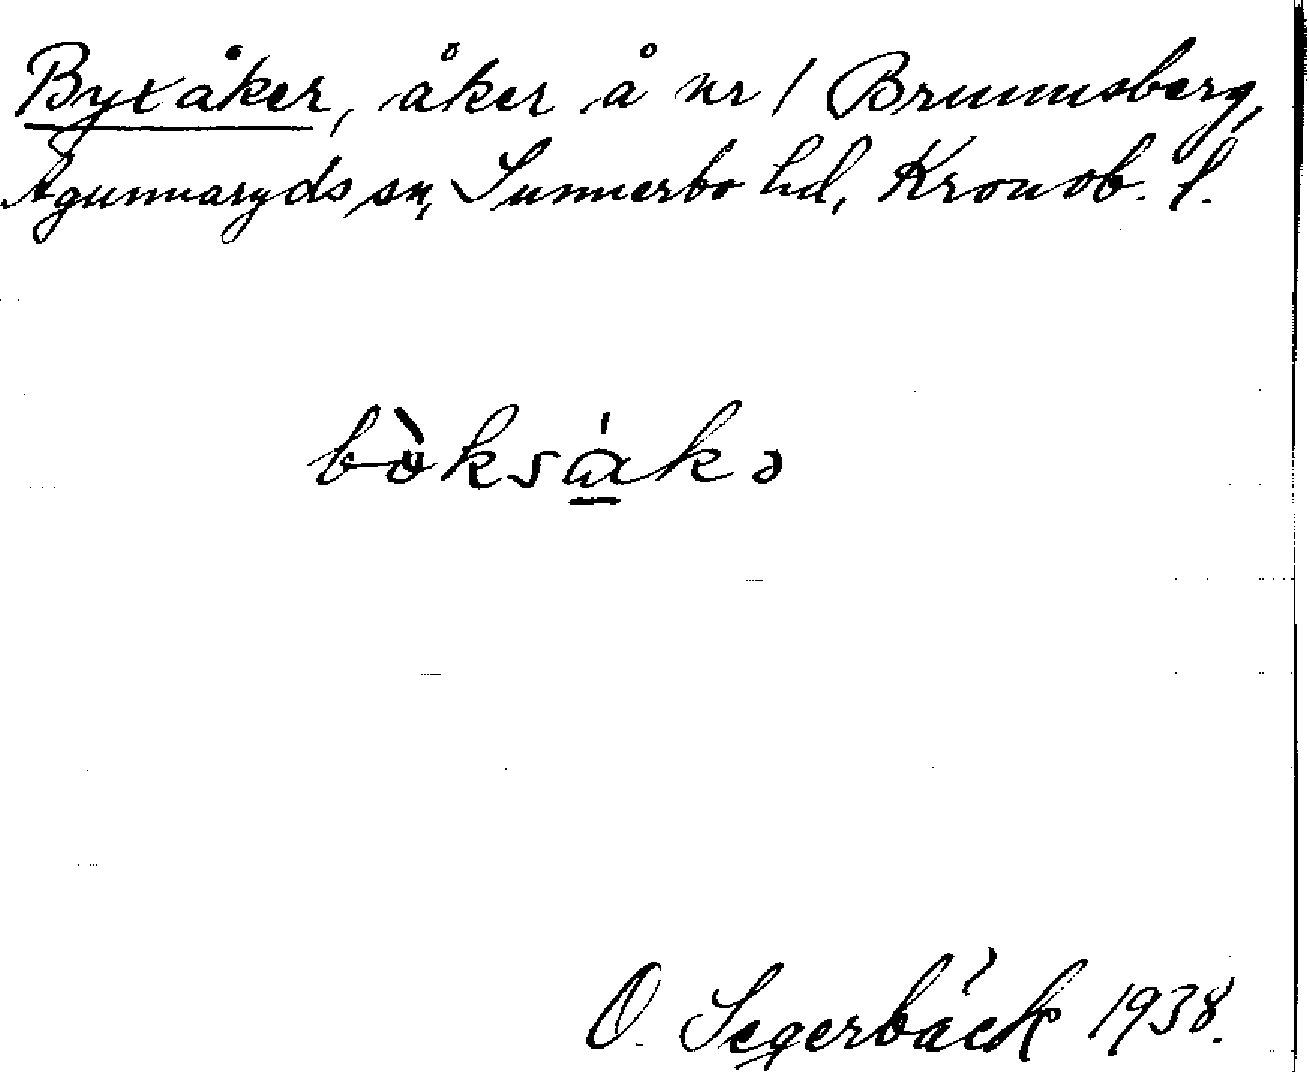 Byxåker, åker å nr 1 Brunnsberg,
Agunnaryds sn, Sunnerbo hd, Kronob. l.
bòksákə
O. Segerbäck 1938.